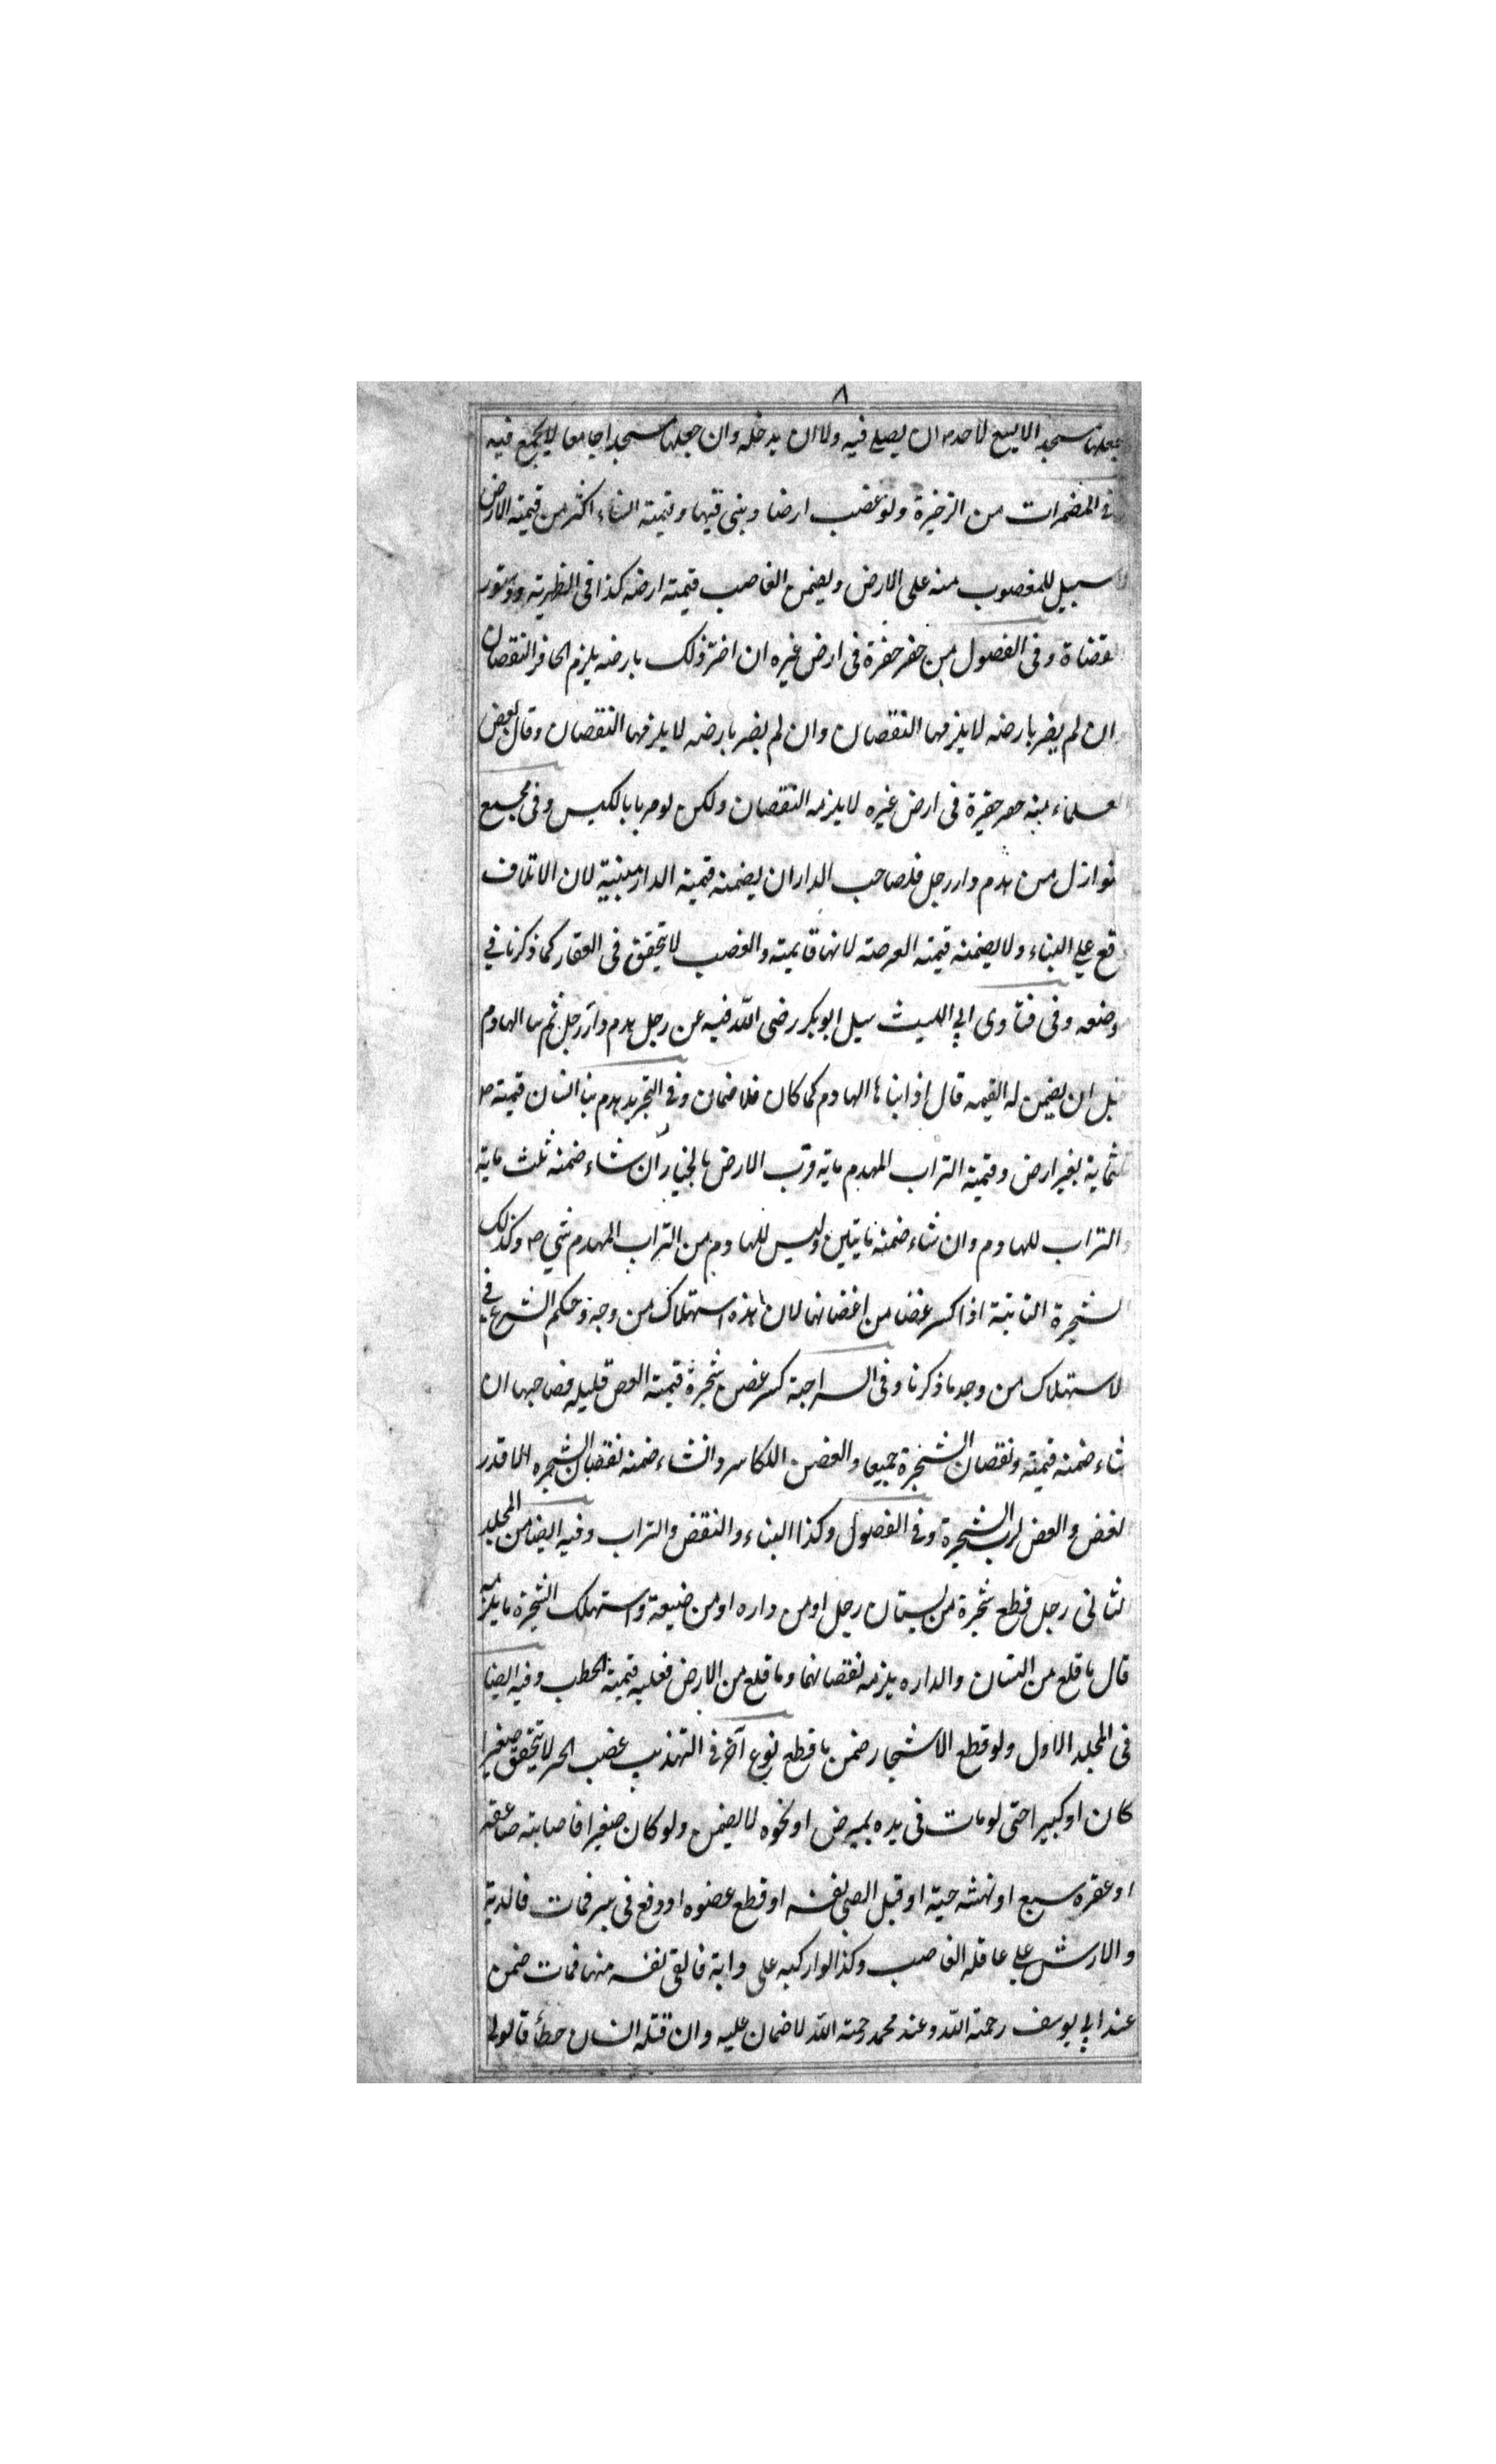 ٨
فجعلها مسجد الا یسع لاحد ان یصلی فیه ولا ان یدخله وان جعلها مسجدا جامعا لا یجمع فیه
فی المضمرات من الذخیرة ولو غصب ارضا وبنی فیها وقیمته البناء اکثر من قیمته الارض
سبیل للمغصوب منه علی الارض ویضمن الغاصب قیمته ارضه کذا فی الظهریة ودستور
لقضاة وفی الفصول من حفر حفرة فی ارض غیره ان اضر ذلک بارضه یلزم الحافر النقصان
ان لم یضر بارضه لا یلزمها النقصان وان لم یضر بارضه لا یلزمها النقصان وقال بعض
لعلماء حفر حفرة فی ارض غیره لا یلزمه النقصان ولکن یومر بالکبس وفی مجمع
نوازل من هدم دار رجل فلصاحب الدار ان یضمنه قیمته الدار مبنیة لان الاتلاف
قع علی البناء ولا یضمنه قیمته العرصته لانها قایمته والغصب لا یتحقق فی العقار کما ذکرنا فی
وضعه وفی فتاوی ابی اللیث سیل ابوبکر رضی الله فیه عن رجل هدم دار رجل ثم بنا الهادم
قبل ان یضمن له القیمه قال اذا بناها الهادم کما کان فلا ضمان وفی التجرید هدم بنا انسان قیمته
ثمایة بغیر ارض وقیمته التراب المهدم مایة فرب الارض بالخیار ان شاء ضمنه ثلث مایة
والتراب للهادم وان شاء ضمنه مایتین ولیس للهادم من التراب المهدم شی وکذلک
لشجرة النابتة اذا کسر غصنا من اغصانها لان هذه استهلاک من وجه وحکم الشرع فی
لاستهلاک من وجه ما ذکرنا وفی السراجیة کسر غصن شجرة قیمته الغصن قلیله فصاحبها ان
شاء ضمنه قیمته ونقصان الشجرة جمیعا والغصن للکاسر وانشاء ضمنه نقصان الشجره الا قدر
لغصن والغصن لرب الشجرة وفی الفصول وکذا البناء والنقض والتراب وفیه ایضا من المجلد
لثانی رجل قطع شجرة من بستان رجل او من داره او من ضیعة واستهلک الشجرة ما یلزمه
قال ما قلع من البستان والداره یلزمه نقصانهما وما قلع من الارض فعلیه قیمة الحطب وفیه ایضا
فی المجلد الاول ولو قطع الاشجار ضمن ما قطع نوع آخر فی التهذیب غصب الحر لا یتحقق صغیرا
کان او کبیرا حتی لو مات فی یده بمرض او نحوه لا یضمن ولو کان صغیرا فاصابته صاعقه
او عقره سبع او نهشه حیة او قتل الصبی نفسه او قطع عضوه او وقع فی بیر فمات فالدیة
والارش علی عاقله الغاصب وکذا لو ارکبه علی دابة فالقی نفسه منها فمات ضمن
عند ابی یوسف رحمته الله وعند محمد رحمته الله لا ضمان علیه وان قتله انسان خطأ فالولی